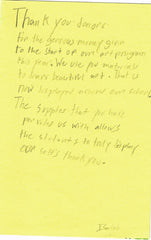 Thank you donors
For the generous money given
to the start of our art program
this year. We use the materials
to draw beautiful art. That is
now displayed around our school
The supplies that
provides us with allows
the students to truly display
our